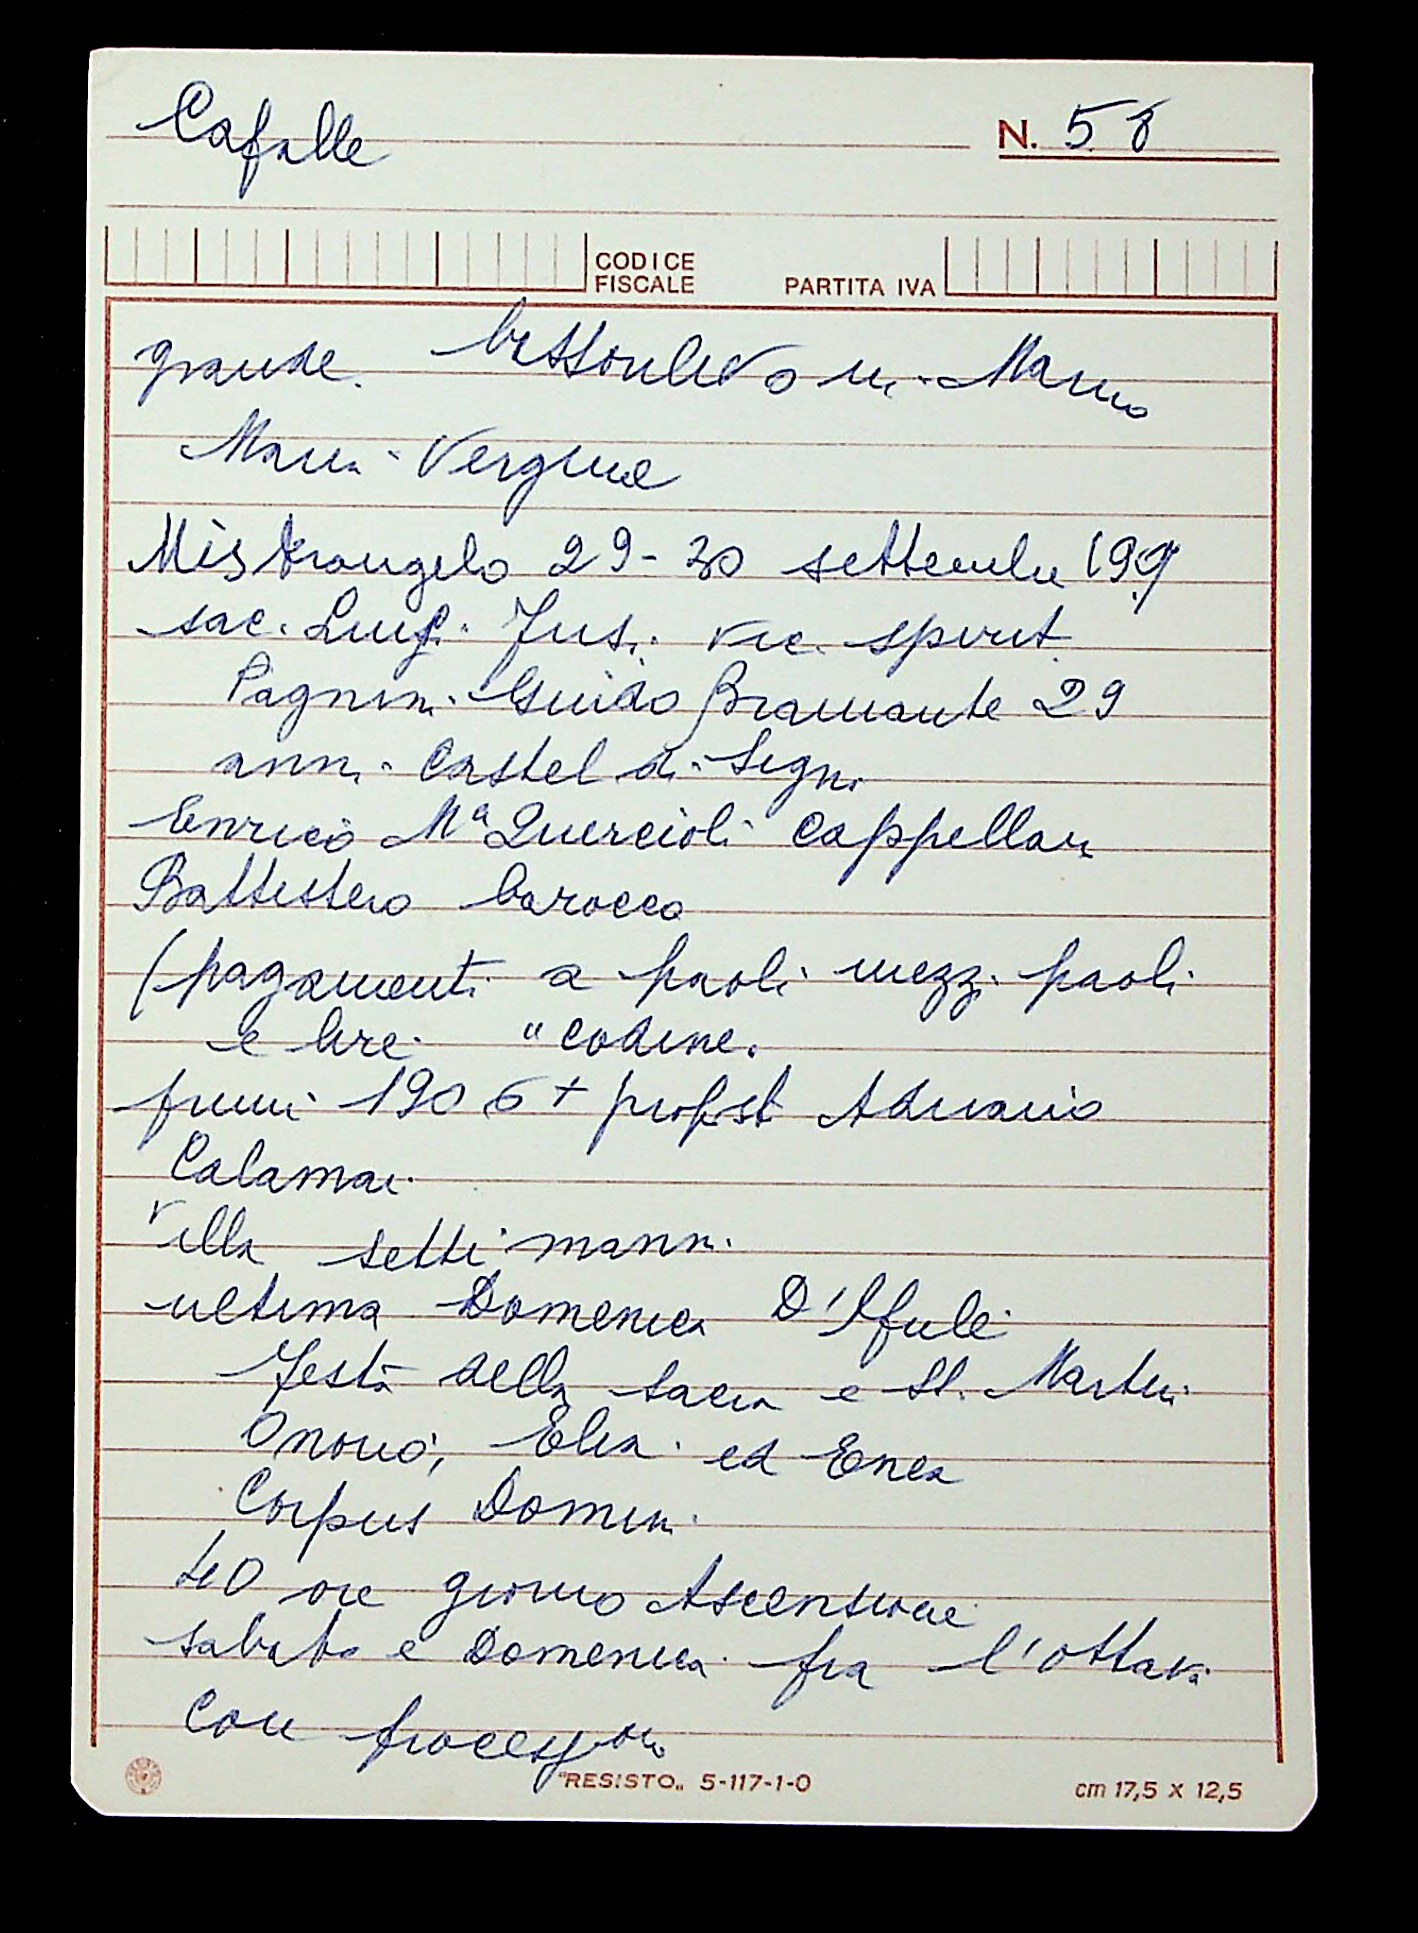 Cafalle
N. 58
CODICE
FISCALE
PARTITA IVA
grande. bassorilievo in Marmo
Maria Vergine
Mistrangelo 29-30 settembre 199
sac. Luigi vic. spirit
Pagnini Guido Bramante 29
anni Castel di Signi
Enrico Mª Quercioli Cappellan
Battistero barocco
(pagamenti a paoli mezzi paoli
e lire "codine.
fumi 1906 + propost Adriano
Calamai
villa settimanni
ultima Domenica D'Aprile
Festa della Sacra e SS. Martiri
Onorio, Elia ed Enea
Corpus Domini
40 ore giorno Ascensione
sabato e Domenica fra l'ottava
con processione
"RESISTO" 5-117-1-0
cm 17,5 x 12,5